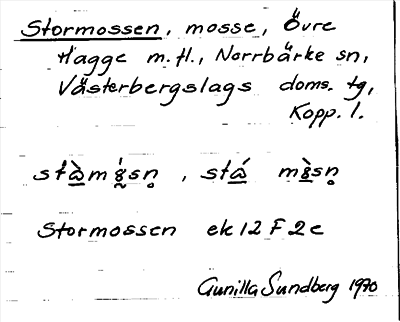 Stormossen, mosse, Övre
Hagge m.fl., Norrbärke sn,
Västerbergslags doms. tg,
Kopp. l.
Stormossen ek 12 F 2e
Gunilla Sundberg 1970